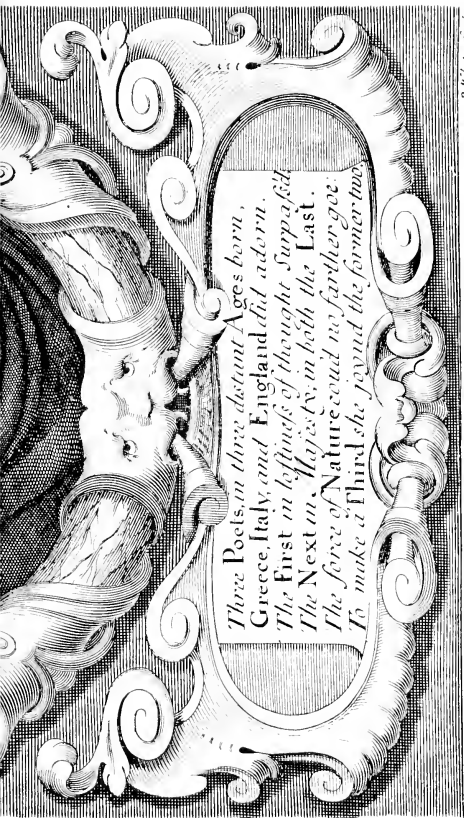 Three Poets, in three distant Ages born,
Greece, Italy, and England did adorn.
The First in loftiness of thought Surpass'd;
The Next in Majesty; in both the Last.
The force of Nature could no farther goe:
To make a Third she joynd the former two.